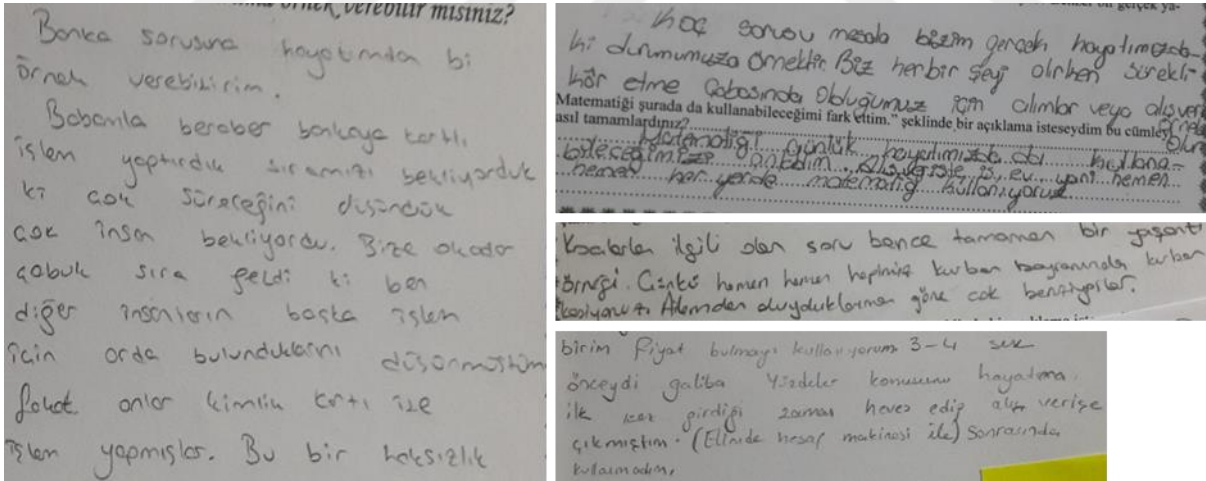 örnek verebilir misiniz?
Banka sorusuna hayatımdan bi
örnek verebilirim.
Babamla beraber bankaya kartlı
işlem yaptırdık sıramızı bekliyorduk
ki çok süreceğini düşündük
çok insan bekliyordu. Bize okadar
çabuk sıra geldi ki ben
diğer insanların başka işlem
için orda bulunduklarını düşünmüştüm
fakat onlar kimlik kartı ile
işlem yapmışlar. Bu bir haksızlık
Koç sorusu mesela bizim gerçek hayatımızda-
ki durumumuza örnektir. Biz herbir şeyi alırken sürekli
kâr etme çabasında olduğumuz için alımlar veya alışveri
Matematiği şurada da kullanabileceğimi fark ettim." şeklinde bir açıklama isteseydim bu cümley
asıl tamamlardınız?
Matematiği günlük hayatımızda da kullana-
bileceğimizi anladım. alışverişte, iş, ev yani hemen
hemen her yerde matematiğ kullanıyoruz
Koçlarla ilgili olan soru bence tamamen bir yaşantı
örneği. Çünkü hemen hemen hepimiz kurban bayramında kurban
kesiyoruz. Ailemden duyduklarıma göre çok benziyorlar.
birim fiyat bulmayı kullanıyorum 3-4 sek
önceydi galiba Yüzdeler konusunu hayatıma
ilk kez girdiği zaman heves edip alış verişe
çıkmıştım. (Elimde hesap makinası ile) Sonrasında
kullanmadım,